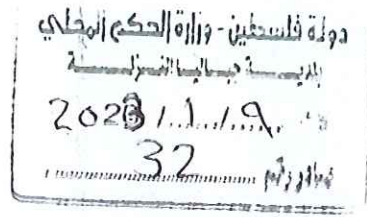 دولة فلسطين - وزارة الحكم المحلي
بلديـــة جباليا النـزلـــة
2023/1/9
صادر رقم 32